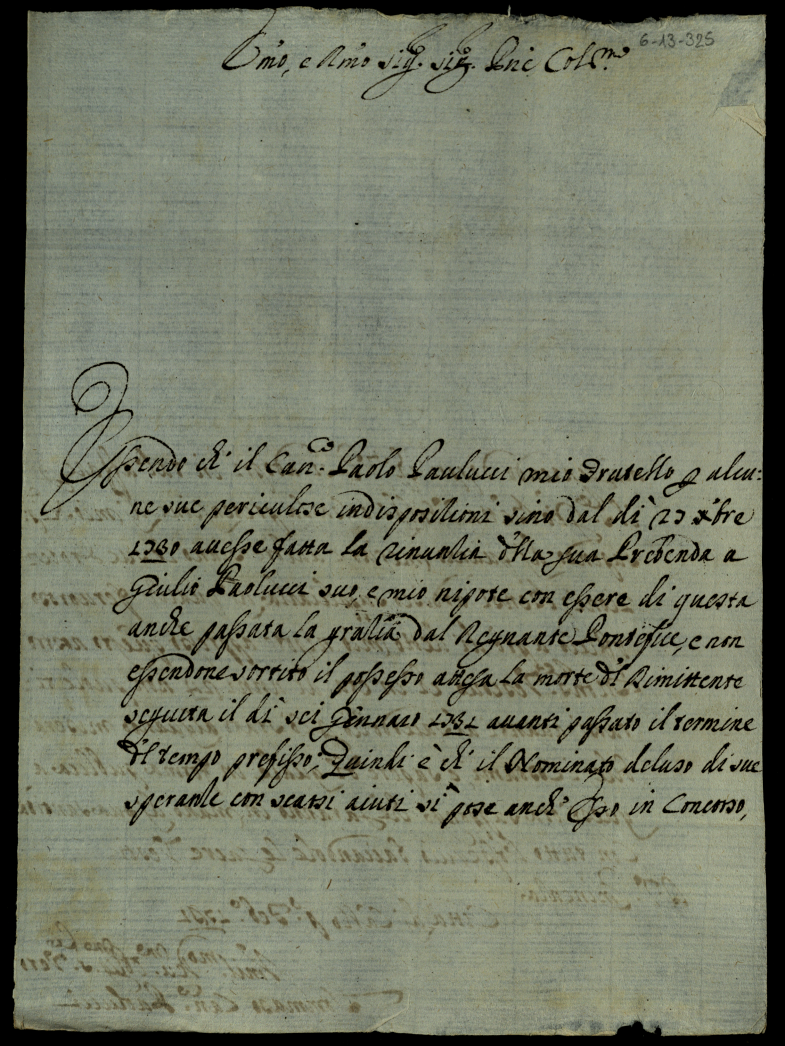 6-13-325
Emo, e Rmo Sig.r Sig.r Pne Col.mo
Essendo chè il Can.co Paolo Paulucci mio Fratello p alcu:
ne sue periculose indispositioni sino dal dì 27 xbre
1730 auesse fatta la rinuntia d'lla sua Prebenda a
Giulio Paolucci suo, e mio nipote con essere di questa
anche passata la gratia dal Regnante Pontefice, e non
essendone sortito il possesso attesa la morte d'l Rimittente
seguita il dì sei Gennaro 1731 auanti passato il termine
d'l tempo prefisso; Quindi è chè il Nominato deluso di sue
speranze con scarsi aiuti si pose anch' Esso in Concorso,